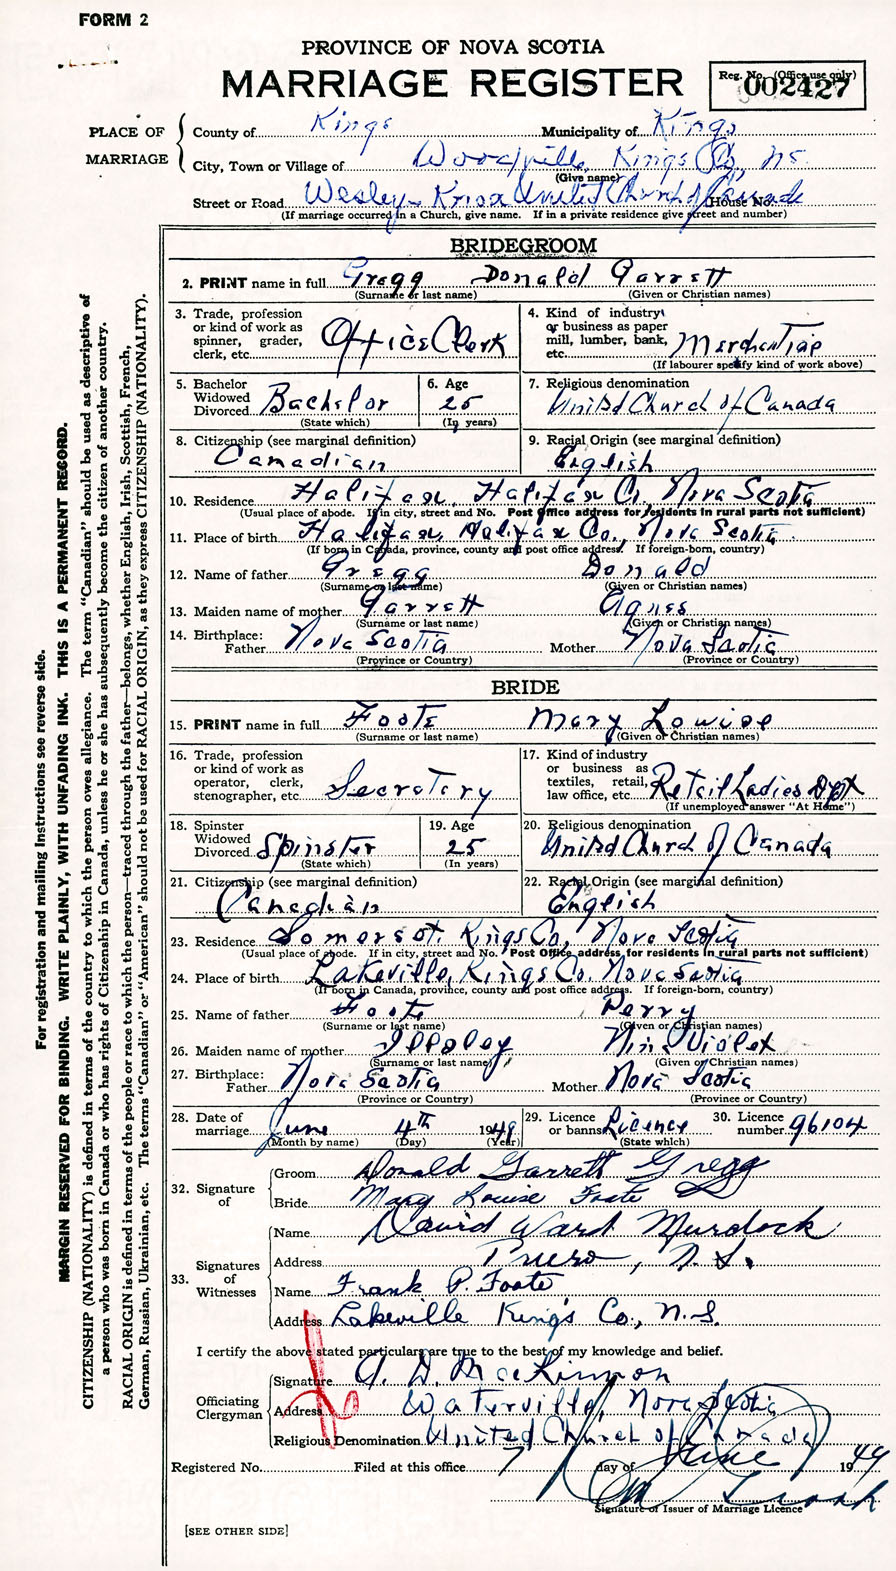 FORM 2
PROVINCE OF NOVA SCOTIA
MARRIAGE REGISTER
Reg. No. (Office use only)
002427
PLACE OF MARRIAGE
County of Kings Municipality of Kings
City, Town or Village of Woodville, Kings Co, NS.
(Give name)
Street or Road Wesley-Knox United Church of Canada House No.
(If marriage occurred in a Church, give name. If in a private residence give street and number)
BRIDEGROOM
2. PRINT name in full Gregg Donald Garrett
(Surname or last name) (Given or Christian names)
3. Trade, profession or kind of work as spinner, grader, clerk, etc. Office Clerk
4. Kind of industry or business as paper mill, lumber, bank, etc.
(If labourer specify kind of work above)
5. Bachelor Widowed Divorced Bachelor
(State which)
6. Age 25
(In years)
7. Religious denomination United Church of Canada
8. Citizenship (see marginal definition) Canadian
9. Racial Origin (see marginal definition) English
10. Residence Halifax, Halifax Co. Nova Scotia
(Usual place of abode. If in city, street and No. Post Office address for residents in rural parts not sufficient)
11. Place of birth Halifax, Halifax Co., Nova Scotia
(If born in Canada, province, county and post office address. If foreign-born, country)
12. Name of father Gregg Donald
(Surname or last name) (Given or Christian names)
13. Maiden name of mother Garrett Agnes
(Surname or last name) (Given or Christian names)
14. Birthplace: Father Nova Scotia Mother Nova Scotia
(Province or Country) (Province or Country)
BRIDE
15. PRINT name in full Foote Mary Louise
(Surname or last name) (Given or Christian names)
16. Trade, profession or kind of work as operator, clerk, stenographer, etc. Secretary
17. Kind of industry or business as textiles, retail, law office, etc. Retail Ladies Dept
(If unemployed answer "At Home")
18. Spinster Widowed Divorced Spinster
(State which)
19. Age 25
(In years)
20. Religious denomination United Church of Canada
21. Citizenship (see marginal definition) Canadian
22. Racial Origin (see marginal definition) English
23. Residence Somerset. Kings Co, Nova Scotia
(Usual place of abode. If in city, street and No. Post Office address for residents in rural parts not sufficient)
24. Place of birth Lakeville, Kings Co. Nova Scotia
(If born in Canada, province, county and post office address. If foreign-born, country)
25. Name of father Foote Perry
(Surname or last name) (Given or Christian names)
26. Maiden name of mother Illsley Nina Violet
(Surname or last name) (Given or Christian names)
27. Birthplace: Father Nova Scotia Mother Nova Scotia
(Province or Country) (Province or Country)
28. Date of marriage June 4th 1949
(Month by name) (Day) (Year)
29. Licence or banns Licence
(State which)
30. Licence number 96104
32. Signature of
Groom Donald Garrett Gregg
Bride Mary Louise Foote
33. Signatures of Witnesses
Name David Ward Murdock
Address Truro, N.S.
Name Frank P. Foote
Address Lakeville King's Co., N.S.
I certify the above stated particulars are true to the best of my knowledge and belief.
Officiating Clergyman
Signature A. D. MacKinnon
Address Waterville, Nova Scotia
Religious Denomination United Church of Canada
Registered No. Filed at this office 7 day of June 1949
Signature of Issuer of Marriage Licence
[SEE OTHER SIDE]
For registration and mailing Instructions see reverse side.
MARGIN RESERVED FOR BINDING. WRITE PLAINLY, WITH UNFADING INK. THIS IS A PERMANENT RECORD.
CITIZENSHIP (NATIONALITY) is defined in terms of the country to which the person owes allegiance. The term "Canadian" should be used as descriptive of
a person who was born in Canada or who has rights of Citizenship in Canada, unless he or she has subsequently become the citizen of another country.
RACIAL ORIGIN is defined in terms of the people or race to which the person—traced through the father—belongs, whether English, Irish, Scottish, French,
German, Russian, Ukrainian, etc. The terms "Canadian" or "American" should not be used for RACIAL ORIGIN, as they express CITIZENSHIP (NATIONALITY).